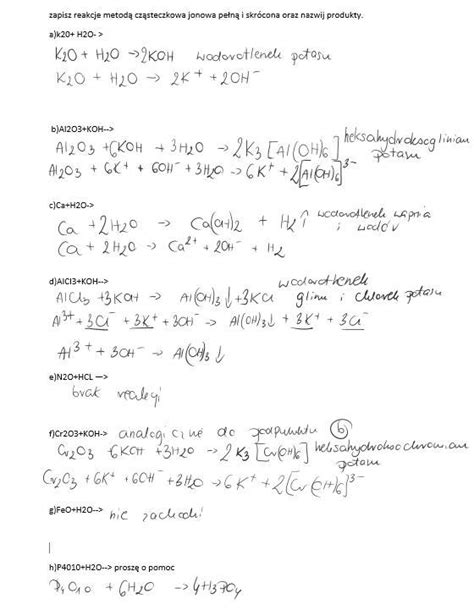 zapisz reakcje metodą cząsteczkowa jonowa pełną i skrócona oraz nazwij produkty.
a)k20+ H2O- >
K2O + H2O → 2KOH wodorotlenek potasu
K2O + H2O → 2K⁺ + 2OH⁻
b)Al2O3+KOH-->
Al2O3 + 6KOH + 3H2O → 2K3[Al(OH)6] heksahydroksoglinian potasu
Al2O3 + 6K⁺ + 6OH⁻ + 3H2O → 6K⁺ + 2[Al(OH)6]³⁻
c)Ca+H2O->
Ca + 2H2O → Ca(OH)2 + H2↑ wodorotlenek wapnia i wodór
Ca + 2H2O → Ca²⁺ + 2OH⁻ + H2
d)AlCl3+KOH-->
AlCl3 + 3KOH → Al(OH)3↓ + 3KCl wodorotlenek glinu i chlorek potasu
Al³⁺ + 3Cl⁻ + 3K⁺ + 3OH⁻ → Al(OH)3↓ + 3K⁺ + 3Cl⁻
Al³⁺ + 3OH⁻ → Al(OH)3↓
e)N2O+HCL —>
brak reakcji
f)Cr2O3+KOH-> analogicznie do podpunktu b
Cr2O3 6KOH + 3H2O → 2K3[Cr(OH)6] heksahydroksochromian potasu
Cr2O3 + 6K⁺ + 6OH⁻ + 3H2O → 6K⁺ + 2[Cr(OH)6]³⁻
g)FeO+H2O--> nie zachodzi
h)P4O10+H2O--> proszę o pomoc
P4O10 + 6H2O → 4H3PO4